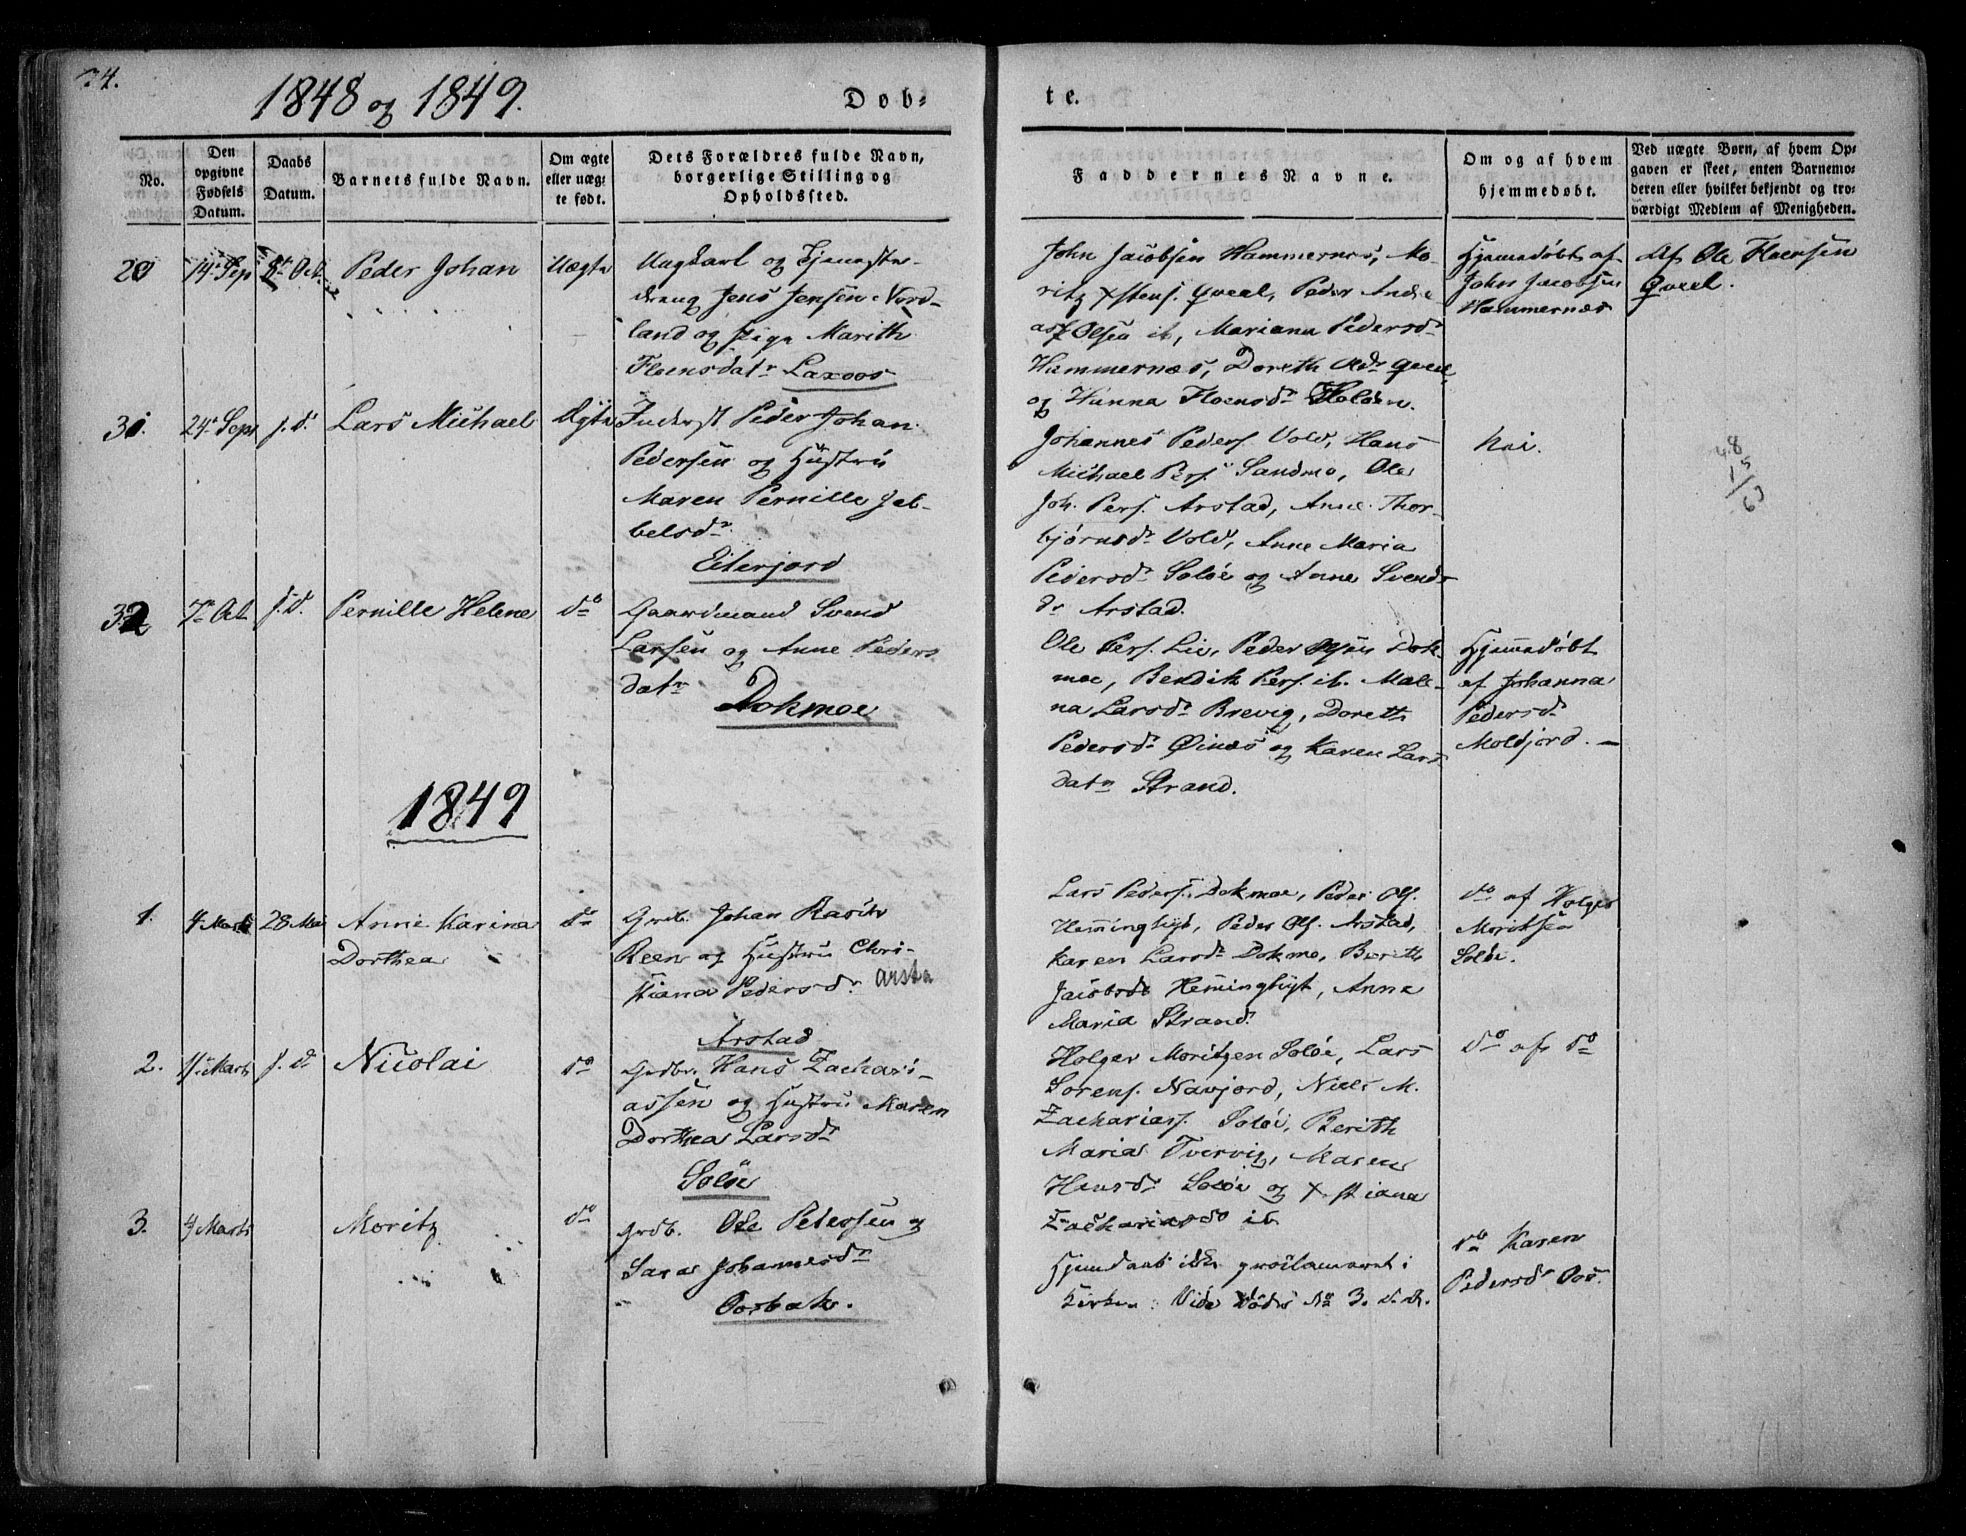 74.
1848 og 1849.
Døb-
te.
No.
Den
opgivne
Fødsels
Datum.
Daabs
Datum.
Barnets fulde Navn.
Om ægte
eller uæg-
te født.
Dets Forældres fulde Navn,
borgerlige Stilling og
Opholdssted.
Faddernes Navne.
Om og af hvem
hjemmedøbt.
Ved uægte Børn, af hvem Op-
gaven er skeet, enten Barnemo-
deren eller hvilket bekjendt og tro-
værdigt Medlem af Menigheden.
14 Sep
Oct.
Peder Johan
Uægte
Ungkarl og Tjeneste-
dreng Jens Jensen Nord-
land og Pige Marith
Floensdatr Laxoos
John Jacobsen Hammernæs, Mo-
ritz Xstens. Qvæl, Peder Andre
as Olsen ib, Mariana Pedersdr
Hammernæs, Doreth Olsdr Qvæl,
og Hanna Floensdr Holden.
Hjemmedøbt af
John Jacobsen
Hammernæs
Af Ole Floensen
Qvæl.
31.
24 Sept
s. d.
Lars Michael
Ægte
Inderst Peder Johan
Pedersen og Hustru
Maren Pernille Jel-
belsdr
Eiterjord
Johannes Peders. Vold, Hans
Michael Pers. Sandmo, Ole
Joh. Pers. Arstad, Anne Thor-
bjørnsdr Vold, Anne Maria
Pedersdr Soløe og Anne Svends
dr Arstad.
Nei.
32
7 Oct
s. d.
Pernille Helene
do
Gaardmand Svend
Larsen og Anne Peders
datr
Dokmoe
Ole Pers. Lie, Peder Dok-
moe, Bendik Pers. ib. Male-
na Larsdr Brevig, Doreth
Pedersdr Øinæs og Karen Lars
datr Strand.
Hjemmedøbt
af Johanna
Pedersdr
Moldjord. —
1849
1.
4 Marts
28 Mai
Anne Karina
Dorthea
do
Grdb. Johan Rasch
Reen og Hustru Chri-
stiana Pedersdr Arsta
Arstad
Lars Peders. Dokmoe, Peder Ols.
Hemminghyt, Peder Ols. Arstad,
Karen Larsdr Dokmo, Berith
Jacobsdr Heminghyt, Anna
Maria Strand.
do af Holger
Moritsen
Soløe.
2.
11 Marts
s. d.
Nicolai
do
Grdbr. Hans Zachari-
assen og Hustru Maren
Dorthea Larsdr
Soløe
Holger Moritzen Soløe, Lars
Sorens. Navjord, Niels M.
Zachariass. Soløe, Berith
Maria Tvervig, Maren
Hansdr Soløe og X-stiana
Zachariasdr ib
do af do
3.
4 Marts
Moritz
do
Grdb. Ole Petersen og
Sara Johannesdr
Oosbak.
Hjemdaab ikke proclameret i
Kirken. Vide Døds No 3. s. A.
do Karen
Pedersdr Oos.